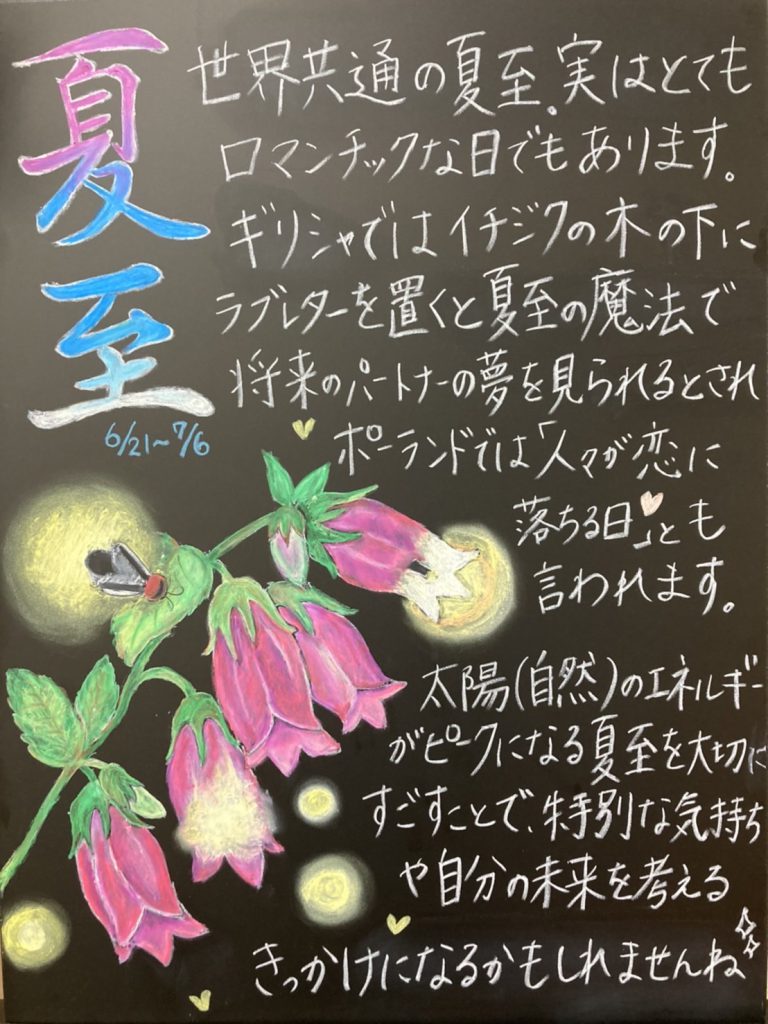 夏至
6/21~7/6
世界共通の夏至。実はとても
ロマンチックな日でもあります。
ギリシャではイチジクの木の下に
ラブレターを置くと夏至の魔法で
将来のパートナーの夢を見られるとされ
ポーランドでは「人々が恋に
落ちる日」とも
言われます。
太陽(自然)のエネルギー
がピークになる夏至を大切に
すごすことで、特別な気持ち
や自分の未来を考える
きっかけになるかもしれませんね